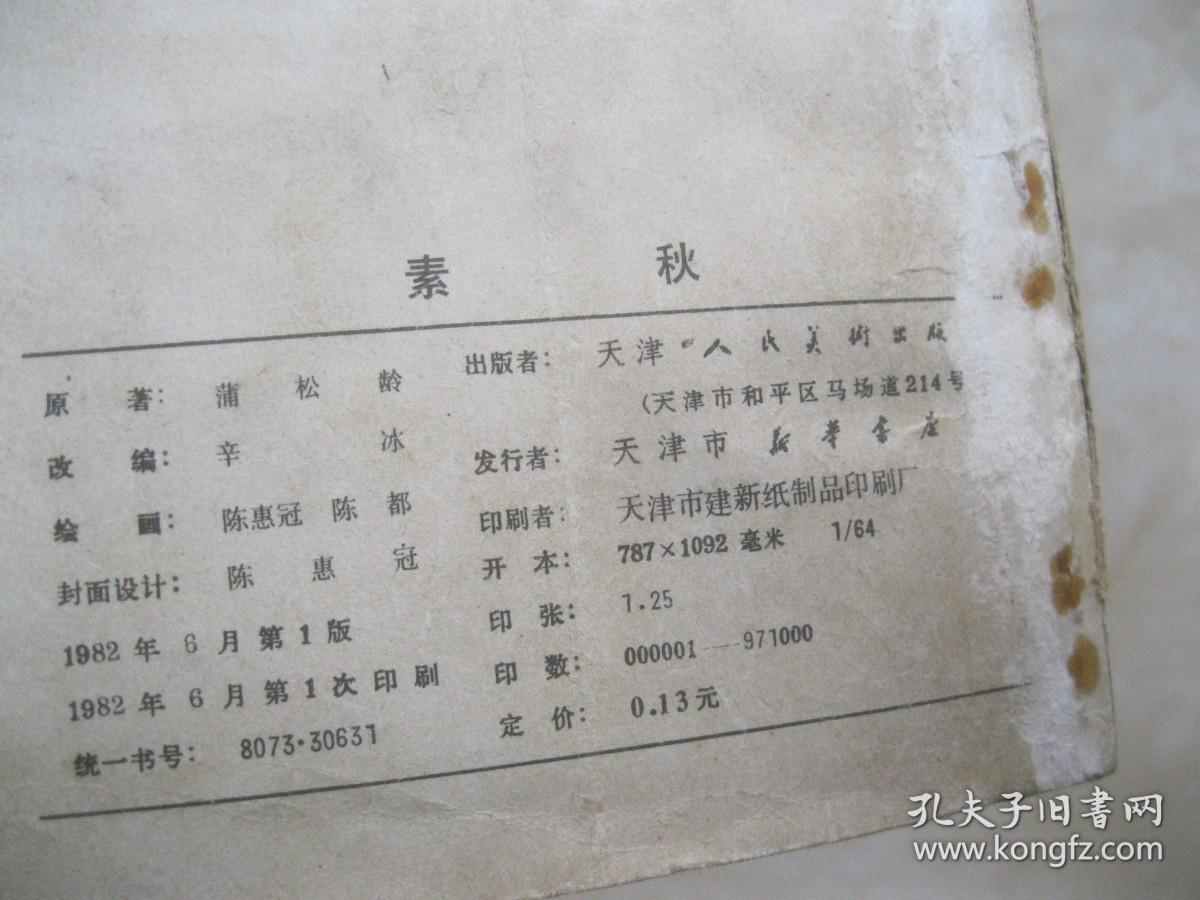 素 秋
原 著：蒲 松 龄
改 编：辛 冰
绘 画：陈惠冠 陈 都
封面设计：陈 惠 冠
1982年 6 月第1版
1982年 6 月第1次印刷
统一书号：8073·30631
出版者：天津人民美術出版
（天津市和平区马场道214号
发行者：天津市新華書店
印刷者：天津市建新纸制品印刷厂
开 本：787×1092 毫米 1/64
印 张：1.25
印 数：000001——971000
定 价：0.13元
孔夫子旧书网
www.kongfz.com